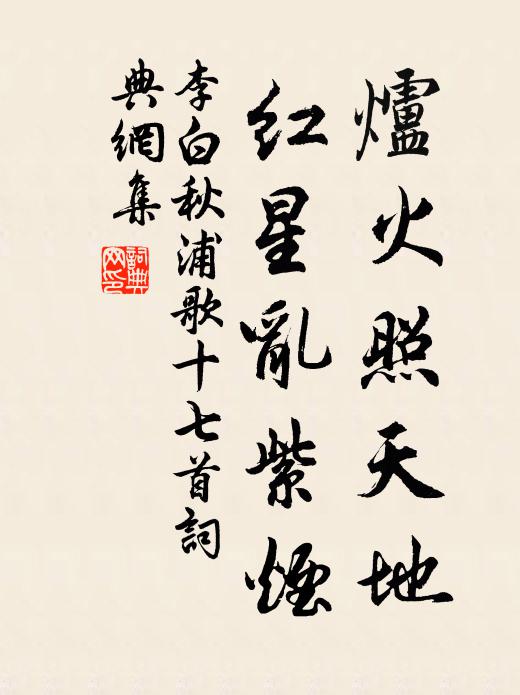 爐火照天地
紅星亂紫煙
李白秋浦歌十七首詞
典網集
詞典
网印